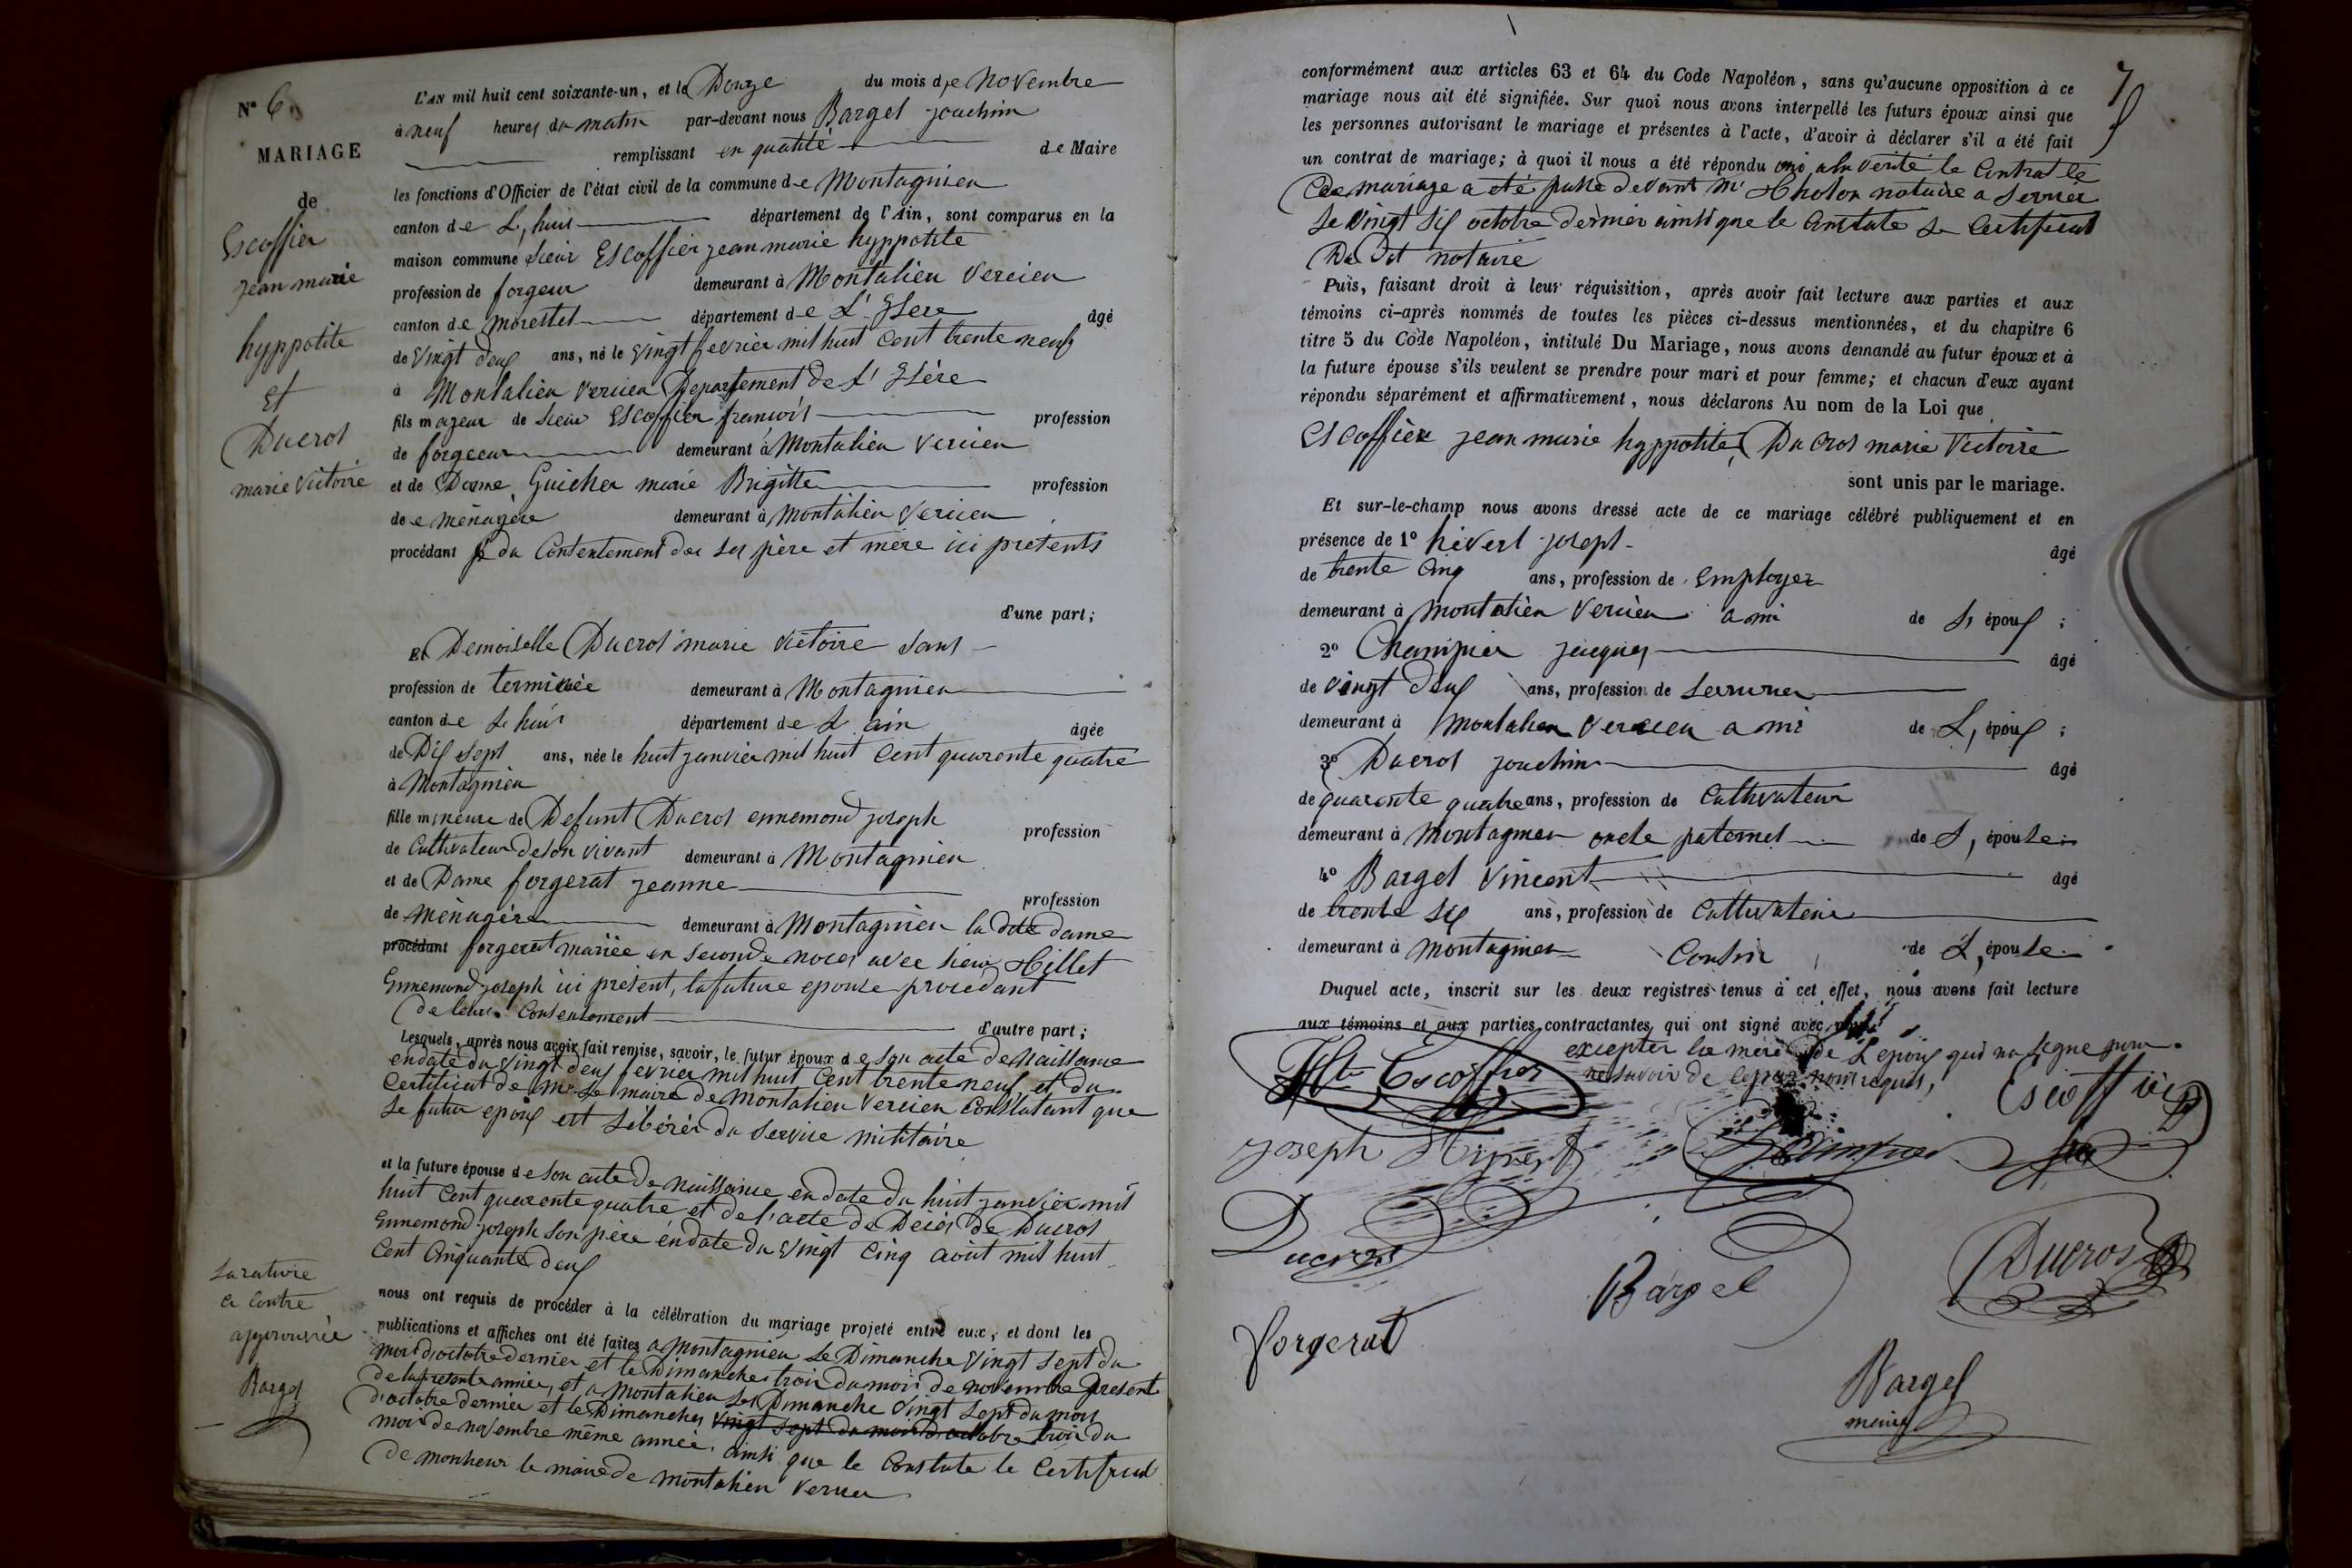 N° 6.
MARIAGE
de
Escoffier
jean marie
hyppolite
Et
Ducros
marie Victoire
L'AN mil huit cent soixante-un, et le Douze du mois de Novembre
à neuf heures du matin par-devant nous Barget joachim
remplissant en qualité de Maire
les fonctions d'Officier de l'état civil de la commune de Montagnieu
canton de L, huis département de l'Ain, sont comparus en la
maison commune sieur Escoffier jean marie hyppolite
profession de forgeur demeurant à Montalieu Vercieu
canton de morestel département de L'Isere âgé
de vingt deux ans, né le vingt fevrier mil huit Cent trente neuf
à Montalieu Vercieu Departement de L'Isère
fils majeur de sieur Escoffier francois profession
de forgeeur demeurant à Montalieu Vercieu
et de Dame Guicher marie Brigitte profession
de menagère demeurant à Montalieu Vercieu
procédant du Consentement de ses père et mère ici présents
d'une part;
Et Demoiselle Ducros marie Victoire sans
profession de terminée demeurant à Montagnieu
canton de L huis département de L ain âgée
de Dix sept ans, née le huit janvier mil huit Cent quarente quatre
à Montagnieu
fille mineure de Defunt Ducros ennemond joseph profession
de Cultivateur de son vivant demeurant à Montagnieu
et de Dame forgerat jeanne profession
de Ménagère demeurant à Montagnieu la dite dame
procédant forgerat mariée en seconde noces avec sieur Hillet
Ennemond joseph ici présent, la future epouse procedant
de leur Consentement d'autre part;
Lesquels, après nous avoir fait remise, savoir, le futur époux de son acte de Naissance
en date du vingt deux fevrier mil huit Cent trente neuf, et du
Certificat de Mr Le maire de Montalieu Vercieu Constatant que
Le futur epoux est Libérér du Service militaire
et la future épouse de son acte de Naissance en date du huit janvier mil
huit Cent quarente quatre et de l'acte de Décés de Ducros
Ennemond joseph son père en date du Vingt Cinq aout mil huit
Cent Cinquante deux
nous ont requis de procéder à la célébration du mariage projeté entre eux, et dont les
publications et affiches ont été faites a Montagnieu Le Dimanche Vingt sept du
mois d'octobre dernier et le Dimanches trois du mois de novembre present
de la presente année, et a Montalieu Les Dimanche Vingt sept du mois
d'octobre dernier et les Dimanches vingt sept du mois d'octobre trois du
mois de novembre même année, ainsi que le Constate le Certificat
de monsieur le maire de Montalieu Vercieu
La rature
Ci Contre
approuvée
Barget
7
conformément aux articles 63 et 64 du Code Napoléon, sans qu'aucune opposition à ce
mariage nous ait été signifiée. Sur quoi nous avons interpellé les futurs époux ainsi que
les personnes autorisant le mariage et présentes à l'acte, d'avoir à déclarer s'il a été fait
un contrat de mariage; à quoi il nous a été répondu oui a la verité le Contrat de
Ce mariage a été passé devant Mr notaire a Serrier
Le Vingt six octobre dernier ainsi que le Constate Le Certificat
Du Dit notaire
Puis, faisant droit à leur réquisition, après avoir fait lecture aux parties et aux
témoins ci-après nommés de toutes les pièces ci-dessus mentionnées, et du chapitre 6
titre 5 du Code Napoléon, intitulé Du Mariage, nous avons demandé au futur époux et à
la future épouse s'ils veulent se prendre pour mari et pour femme; et chacun d'eux ayant
répondu séparément et affirmativement, nous déclarons Au nom de la Loi que
Escoffier jean marie hyppolite, Ducros marie Victoire
sont unis par le mariage.
Et sur-le-champ nous avons dressé acte de ce mariage célébré publiquement et en
présence de 1° hivert joseph âgé
de trente Cinq ans, profession de Employer
demeurant à Montalieu Vercieu ami de L, époux ;
2° Champier jacques âgé
de vingt deux ans, profession de Serrurier
demeurant à Montalieu Vercieu ami de L, époux ;
3° Ducros joachim âgé
de quarente quatre ans, profession de Cultivateur
demeurant à Montagnieu oncle paternel de L, épouse
4° Barget Vincent âgé
de trente six ans, profession de Cultivateur
demeurant à Montagnieu Cousin de L, épouse
Duquel acte, inscrit sur les deux registres tenus à cet effet, nous avons fait lecture
aux témoins et aux parties contractantes qui ont signé avec nous
excepter la mère de L epoux qui na signe pour
ne savoir de ce requis,
Escoffier
Escoffier
Joseph Hivert
Ducros
Bargel
Ducros
forgerat
Barget
maire